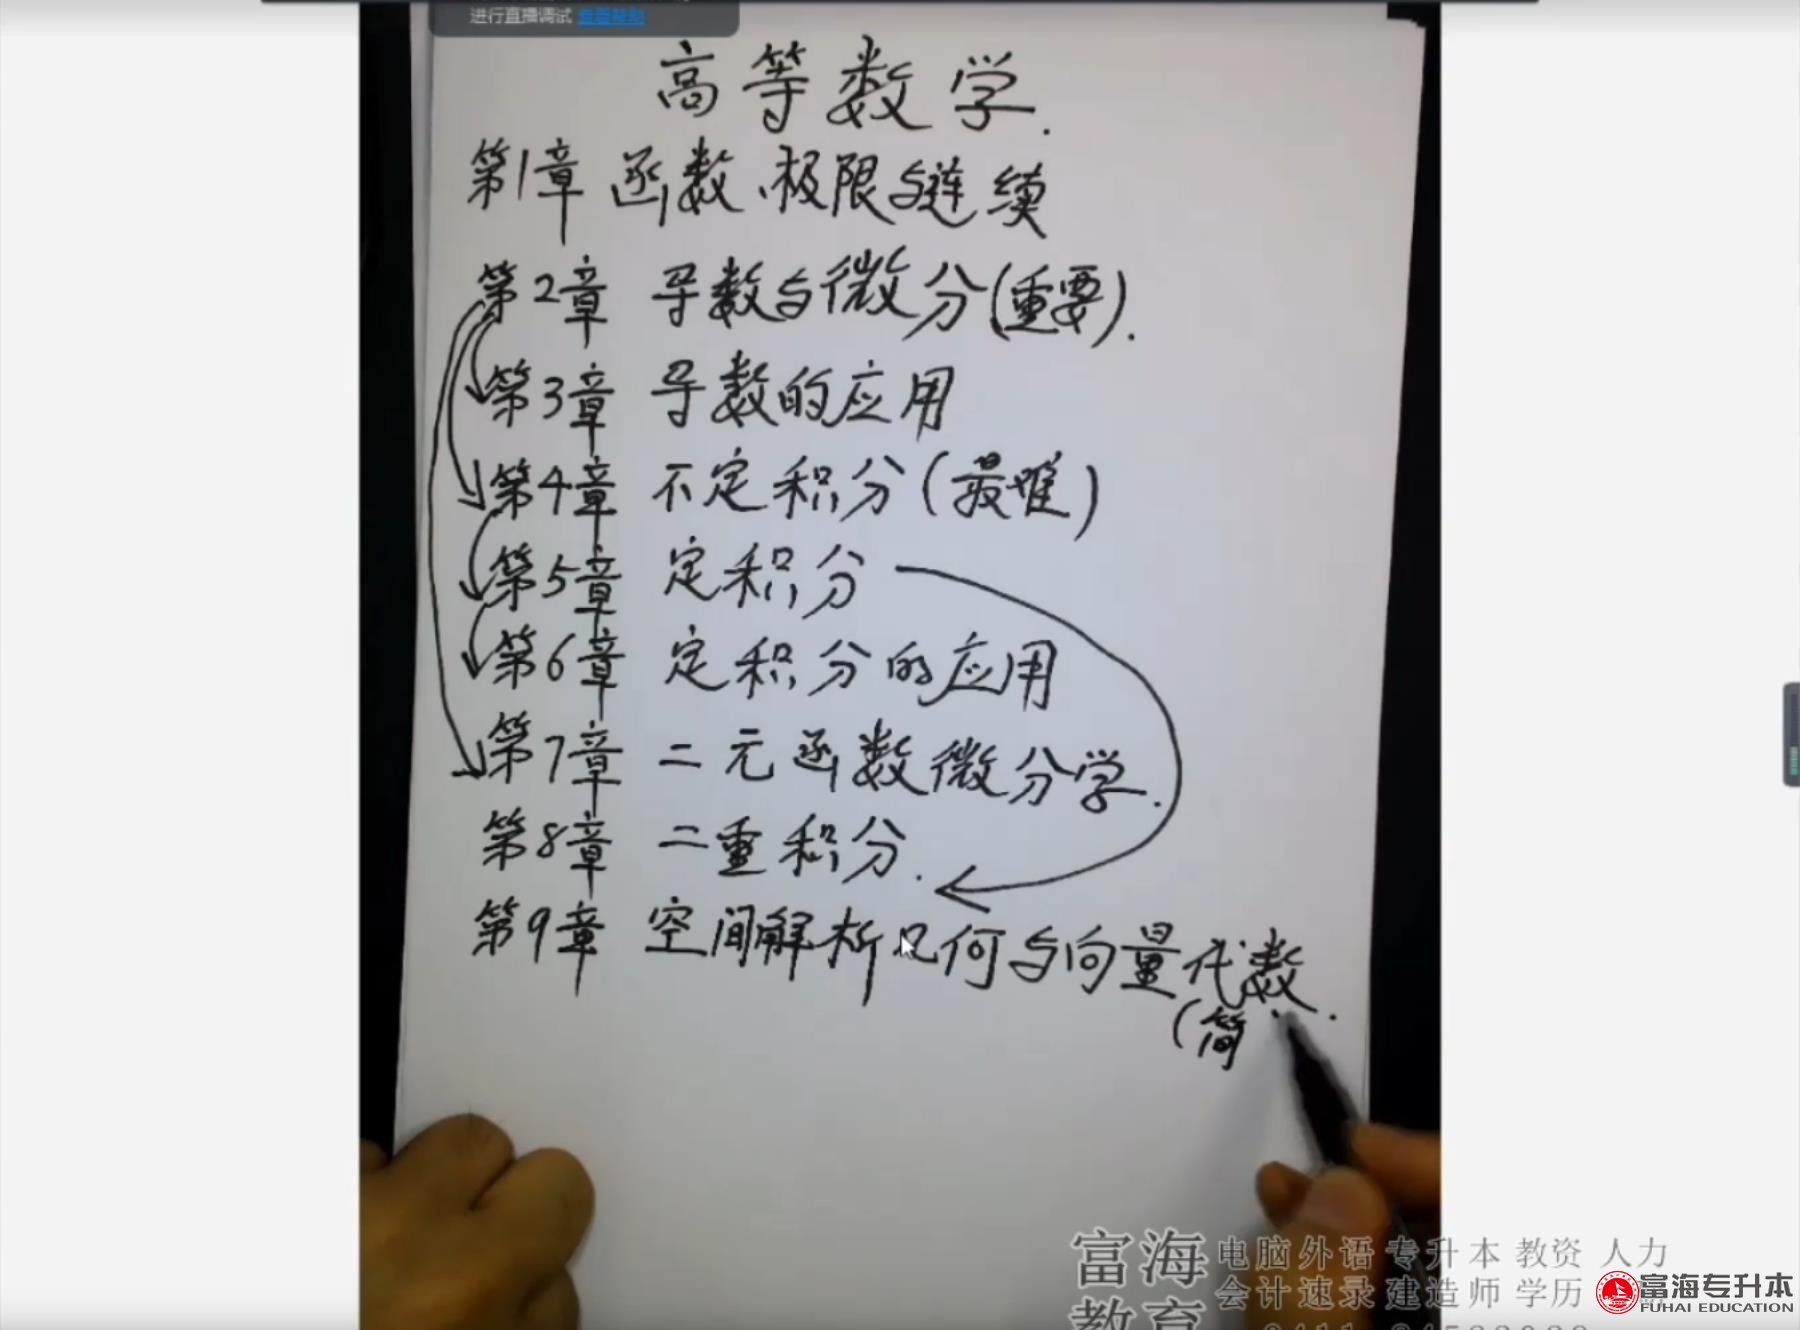 进行直播调试 查看帮助
高等数学.
第1章 函数、极限与连续
第2章 导数与微分(重要).
第3章 导数的应用
第4章 不定积分(最难)
第5章 定积分
第6章 定积分的应用
第7章 二元函数微分学.
第8章 二重积分.
第9章 空间解析几何与向量代数.
(简
富海 电脑外语 专升本 教资 人力
教育 会计速录 建造师 学历
富海专升本
FUHAI EDUCATION